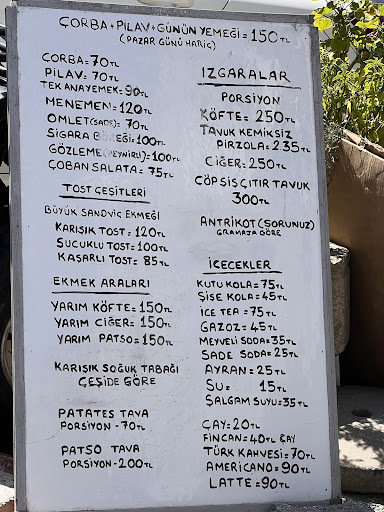 ÇORBA+PİLAV+GÜNÜN YEMEĞİ=150TL
(PAZAR GÜNÜ HARİÇ)
ÇORBA=70TL
PİLAV=70TL
TEK ANAYEMEK=90TL
MENEMEN=120TL
OMLET(SADE)=70TL
SİGARA BÖREĞİ=100TL
GÖZLEME(PEYNİRLİ)=100TL
ÇOBAN SALATA=75TL
TOST ÇEŞİTLERİ
BÜYÜK SANDVİÇ EKMEĞİ
KARIŞIK TOST=120TL
SUCUKLU TOST=100TL
KAŞARLI TOST=85TL
EKMEK ARALARI
YARIM KÖFTE=150TL
YARIM CİĞER=150TL
YARIM PATSO=150TL
KARIŞIK SOĞUK TABAĞI
ÇEŞİDE GÖRE
PATATES TAVA
PORSİYON-70TL
PATSO TAVA
PORSİYON-200TL
IZGARALAR
PORSİYON
KÖFTE=250TL
TAVUK KEMİKSİZ
PİRZOLA=235TL
CİĞER=250TL
ÇÖPŞİŞ ÇITIR TAVUK
300TL
ANTRİKOT (SORUNUZ)
GRAMAJA GÖRE
İÇECEKLER
KUTU KOLA=75TL
ŞİŞE KOLA=45TL
ICE TEA=75TL
GAZOZ=45TL
MEYVELİ SODA=35TL
SADE SODA=25TL
AYRAN=25TL
SU= 15TL
ŞALGAM SUYU=35TL
ÇAY=20TL
FİNCAN=40TL ÇAY
TÜRK KAHVESİ=70TL
AMERICANO=90TL
LATTE=90TL